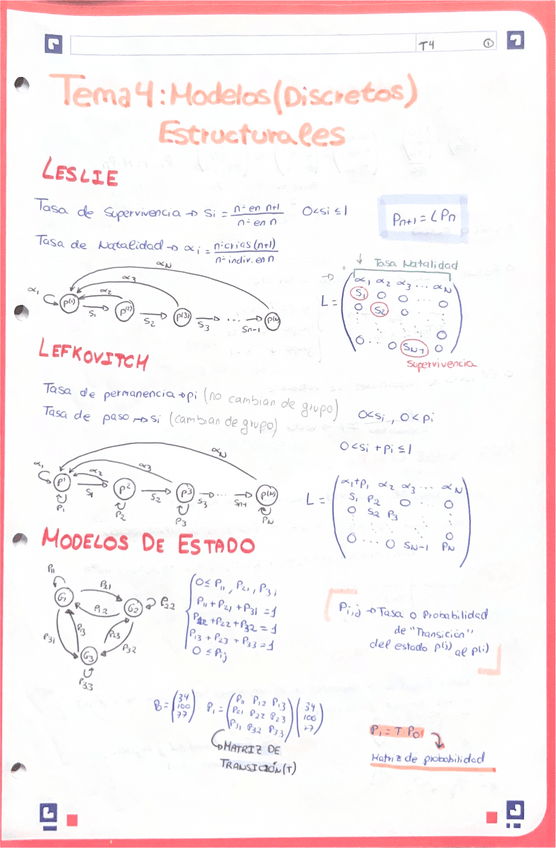 T4 ①
Tema 4: Modelos (Discretos)
Estructurales
LESLIE
Tasa de Supervivencia → Si = nº en n+1 / nº en n   0<si≤1
Pn+1 = L Pn
Tasa de Natalidad → αi = nº crias (n+1) / nº indiv. en n
↓ Tasa Natalidad
α1 α2 α3 αN
P(1) P(2) P(3) P(N)
S1 S2 S3 ... SN-1
L = ( α1 α2 α3 ... αN
S1 0 0 ... 0
0 S2 0
0 ... 0 SN-1 0 )
Supervivencia
LEFKOVITCH
Tasa de permanencia → pi (no cambian de grupo)
Tasa de paso → si (cambian de grupo)
0<si, 0<pi
0<si+pi≤1
α1 α2 α3 αN
P1 P2 P3 P(N)
S1 S2 S3 ... SN-1
P1 P2 P3 PN
L = ( α1+P1 α2 α3 ... αN
S1 P2 0 ... 0
0 S2 P3
0 ... 0 SN-1 PN )
MODELOS DE ESTADO
P11 P21 P12 P22
G1 G2 G3
P31 P13 P23 P32
P33
0≤P11, P21, P31
P11+P21+P31=1
P12+P22+P32=1
P13+P23+P33=1
0≤Pij
Pi,j → Tasa o Probabilidad
de "Transición"
del estado P(j) al P(i)
P0 = (34 100 77)   P1 = (P11 P12 P13
P21 P22 P23
P31 P32 P33) (34 100 77)
MATRIZ DE
TRANSICIÓN (T)
P1 = T P0
Matriz de probabilidad